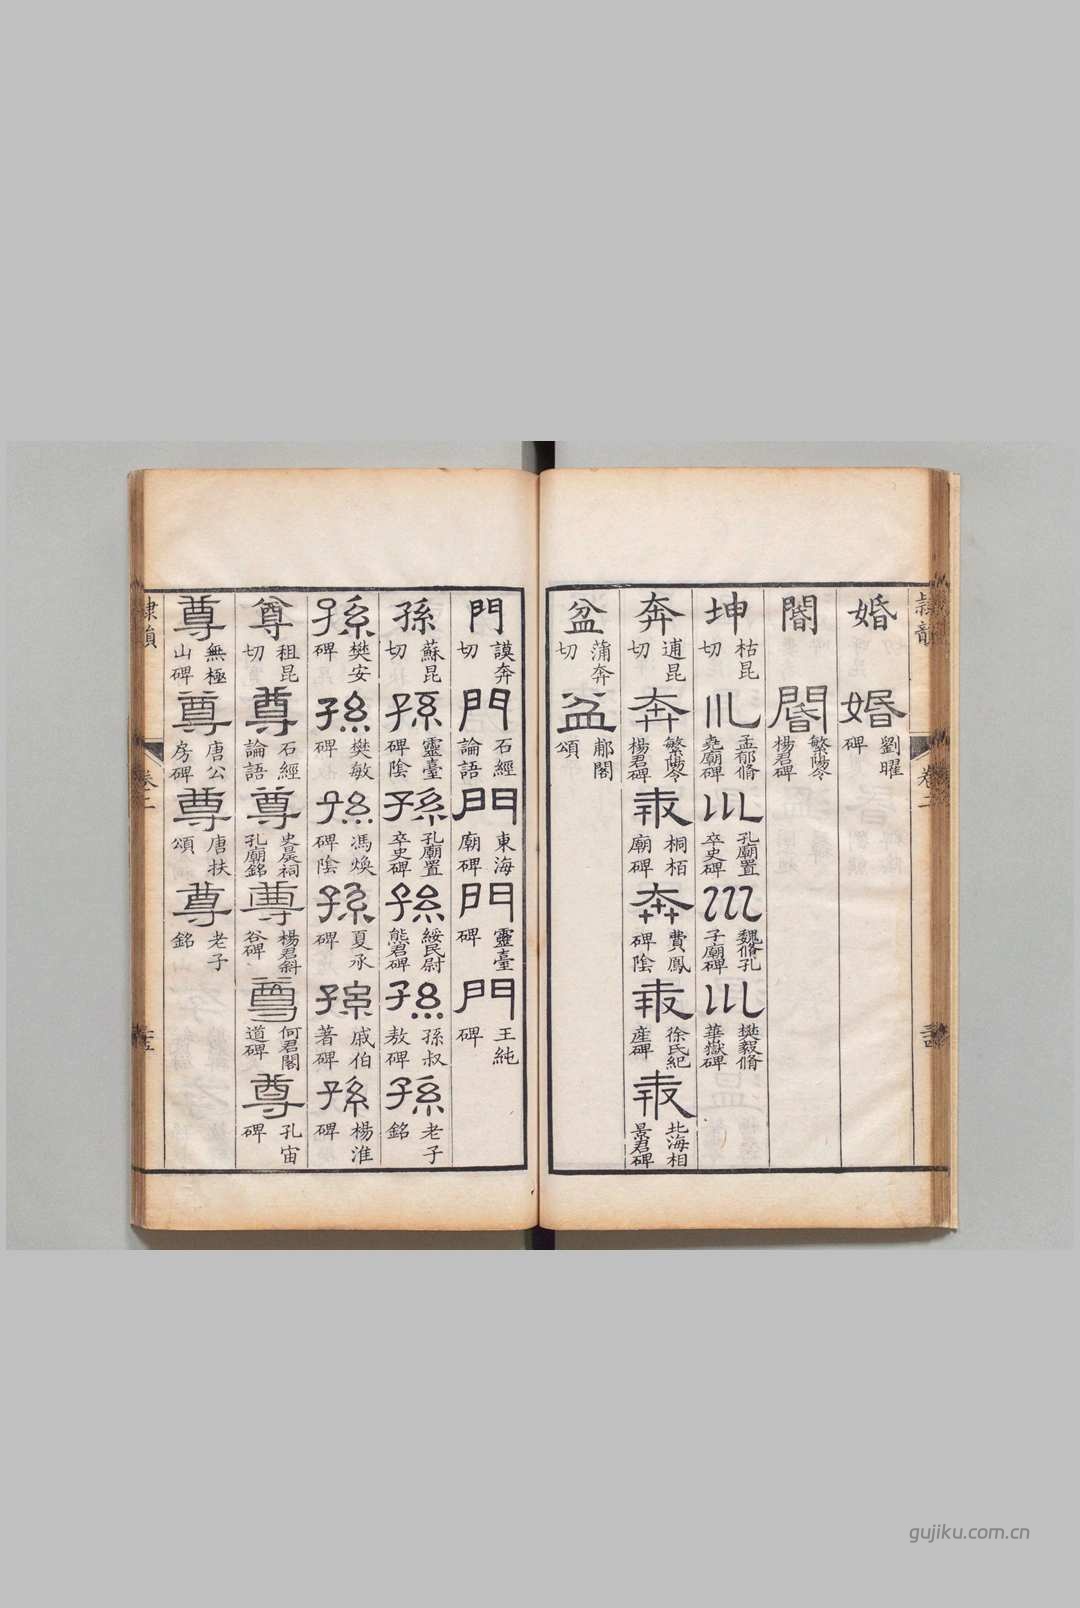 隷韻 卷二 二十四
婚 婚 劉曜碑
閽 閽 繁陽令楊君碑
坤 枯昆切 巛 孟郁脩堯廟碑 巛 孔廟置卒史碑 巛 魏脩孔子廟碑 巛 樊毅脩華嶽碑
奔 逋昆切 奔 繁陽令楊君碑 奔 桐栢廟碑 奔 費鳳碑陰 奔 徐氏紀產碑 奔 北海相景君碑
盆 蒲奔切 盆 郙閣頌
門 謨奔切 門 石經論語 門 東海廟碑 門 靈臺碑 門 王純碑
孫 蘇昆切 孫 靈臺碑陰 孫 孔廟置卒史碑 孫 綏民尉熊君碑 孫 孫叔敖碑 孫 老子銘
孫 樊安碑 孫 樊敏碑 孫 馮煥碑陰 孫 夏承碑 孫 戚伯著碑 孫 楊淮碑
尊 祖昆切 尊 石經論語 尊 史晨祠孔廟銘 尊 楊君斜谷碑 尊 何君閣道碑 尊 孔宙碑
尊 無極山碑 尊 唐公房碑 尊 唐扶頌 尊 老子銘
隷韻 卷二 二十五
gujiku.com.cn